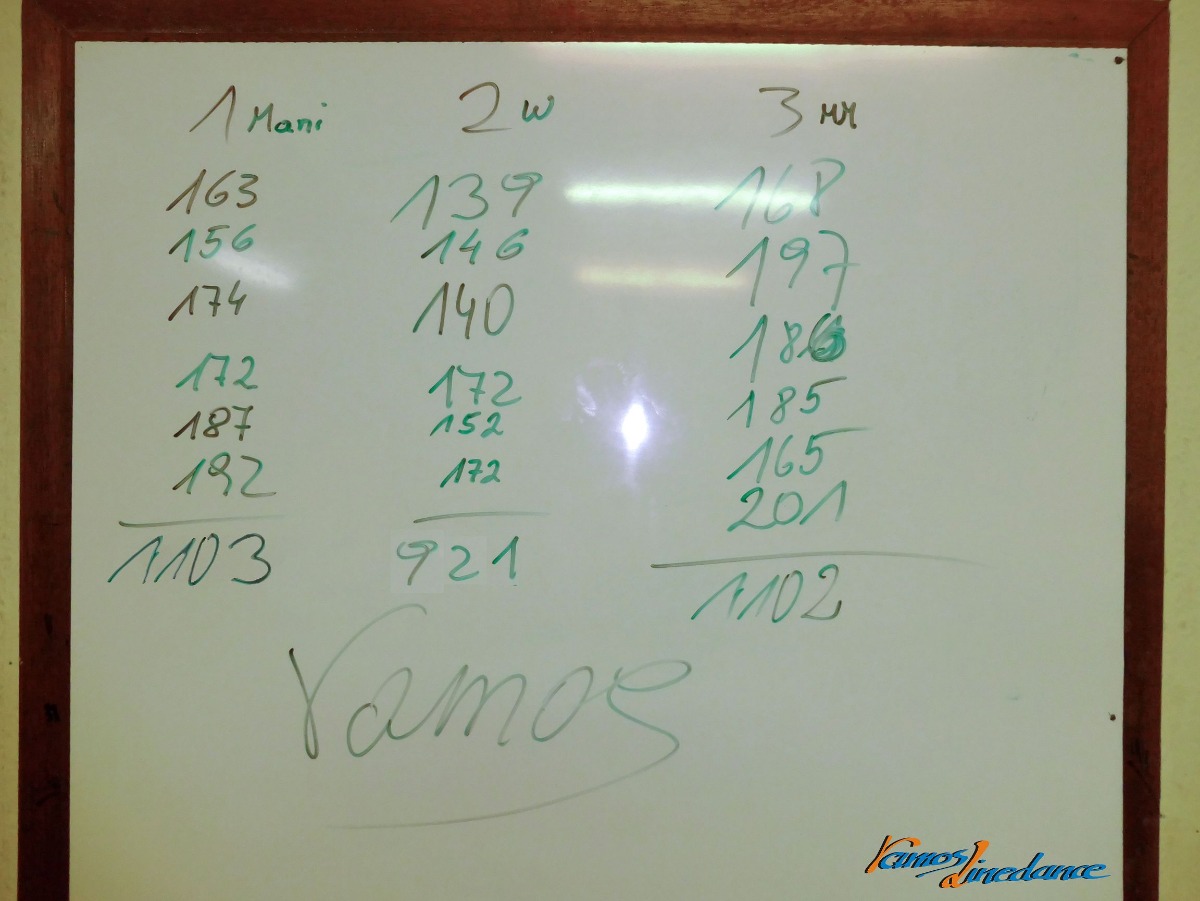 1 Mani 2 W 3 MM
163 139 168
156 146 197
174 140 186
172 172 185
187 152 165
192 172 201
1103 921 1102
Vamos
Vamos Linedance